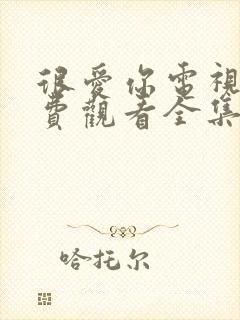 很愛你電視
費觀看全集
哈托尔